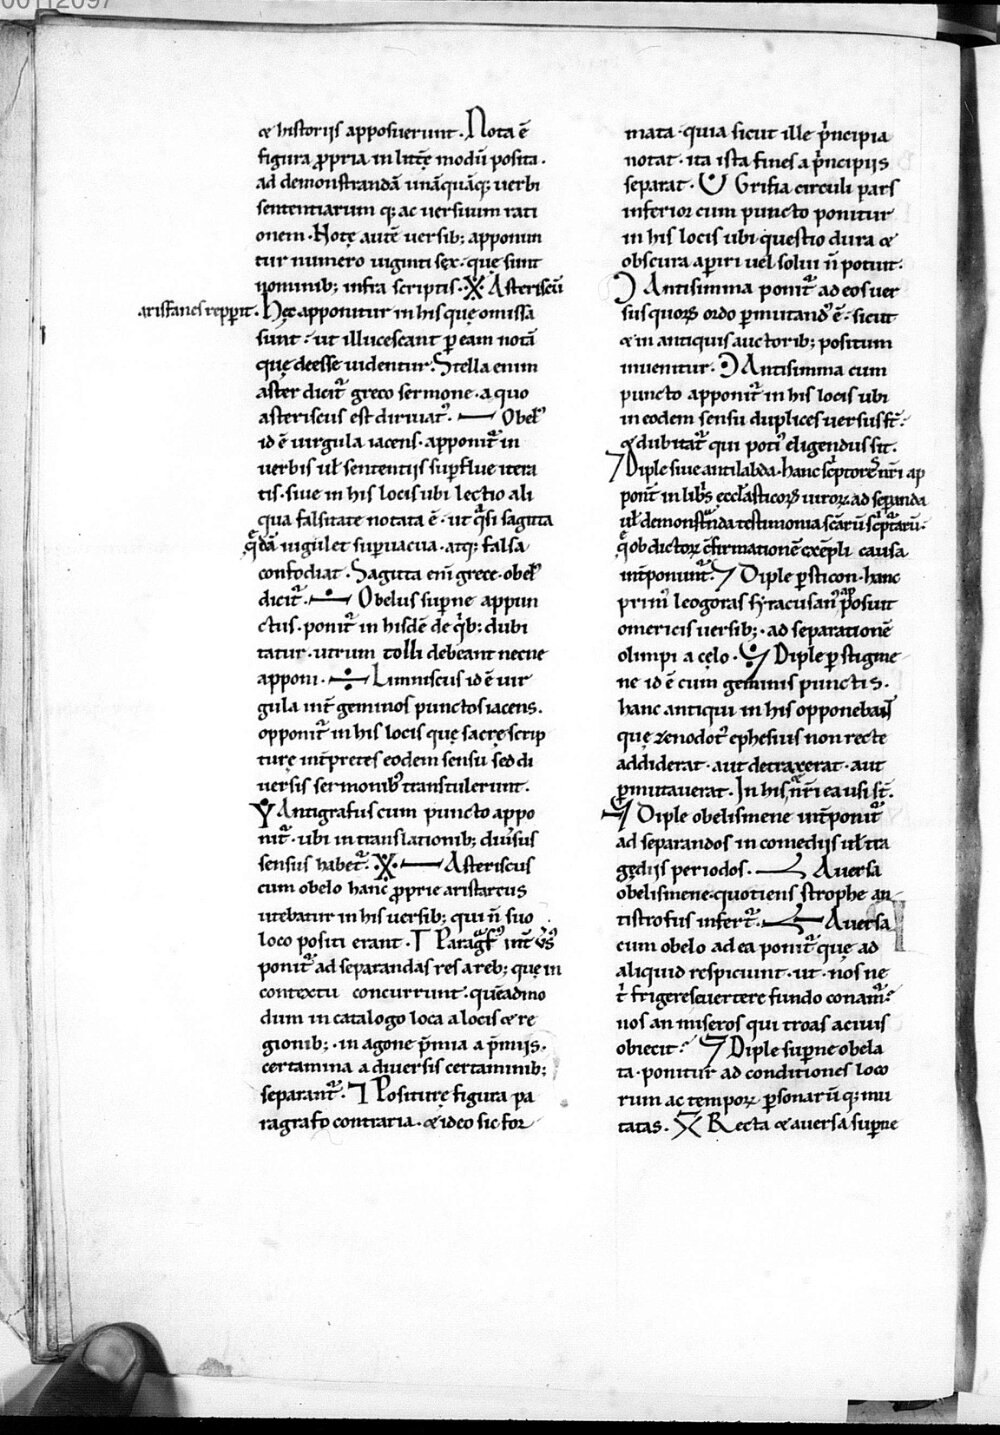 00112097
& historiis apposuerunt. Nota ē
figura ꝓpria in littęre modū posita.
ad demonstrandā unāquāq; uerbi
sententiarum q; ac uersuum rati
onem. Notę autē uersib; apponun
tur numero uiginti sex. quę sunt
nominib; infra scriptis. ※ Asteriscū
aristanes repp̄it. Hęc apponitur in his quę omissa
sunt. ut illucescant ꝑ eam notā
quę deesse uidentur. Stella enim
aster dicit᷑ greco sermone. a quo
asteriscus est diriuat᷑. — Obel᷒
id ē uirgula iacens. apponit᷑ in
uerbis ul̄ sententiis suꝑflue itera
tis. siue in his locis ubi lectio ali
qua falsitate notata ē. ut q̄si sagitta
q̄dā uigulet suꝑuacua. atq; falsa
confodiat. Sagitta eni grece obel᷒
dicit᷑. ∸ Obelus suꝑne appun
ctus. ponit᷑ in hisdē de q̄b: dubi
tatur. utrum tolli debeant necne
apponi. ÷ Limniscus id ē uir
gula int̄ geminos punctos iacens.
opponit᷑ in his locis quę sacrę scrip
turę int̄pretes eodem sensu sed di
uersis sermonib᷒ transtulerunt.
Y Antigrafus cum puncto appo
nit᷑. ubi in translationib; diūsus
sensus habet᷑. ※— Asteriscus
cum obelo hanc ꝓprie aristarcus
utebatur in his uersib; qui n̄ suo
loco positi erant. Γ Paragf᷒ int̄
ponit᷑ ad separandas res a reb; quę in
contextu concurrunt. quēadmo
dum in catalogo loca a locis & re
gionib;. in agone p̄mia a p̄miis.
certamina a diuersis certaminib;
separant᷑. ꓶ Positurę figura pa
ragrafo contraria. & ideo sic for
mata. quia sicut ille p̄ncipia
notat. ita ista fines a p̄ncipiis
separat. Grifia circuli pars
inferior cum puncto ponitur
in his locis ubi questio dura &
obscura aꝑiri uel solui n̄ potuit.
Ɔ Antisimma ponit᷑ ad eos uer
sus quoꝝ ordo ꝑmutand᷒ ē. sicut
& in antiquis auctorib; positum
inuenitur. Ɔ Antisimma cum
puncto apponit᷑ in his locis ubi
in eodem sensu duplices uersus st̄.
& dubitat᷑ qui poti᷒ eligendus sit.
Diple siue antilabda. hanc sc̄ptores nr̄i ap
pont̄ in libr̄s ecclāsticoꝝ uiroꝝ ad separanda
ul̄ demonst̄nda testimonia scārū sc̄ptarū.
q̄ ob dictoꝝ c̄firmationē exēpli causa
int̄ponunt᷑. Diple ꝑsticon. hanc
prim᷒ leogoras syracusan᷒ apposuit
omericis uersib;. ad separationē
olimpi a cęlo. Diple ꝑ stigme
ne id ē cum geminis punctis.
hanc antiqui in his opponebant
quę zenodot᷒ ephesius non recte
addiderat. aut detraxerat. aut
ꝑmutauerat. In his & nr̄i ea usi st̄.
Diple obelismene int̄ponit᷑
ad separandos in comediis ul̄ tra
gędiis periodos. Auersa
obelismene. quotiens strophe an
tistrofus infert᷑. Auersa
cum obelo ad ea ponit᷑ quę ad
aliquid respiciunt. ut. nos ne
t̄ frigeres uertere fundo conam᷑
nos an miseros qui troas aciuis
obiecit. Diple suꝑne obela
ta. ponitur ad conditiones loco
rum ac tempoꝝ ꝑsonarū q; mu
tatas. Recta & auersa suꝑne